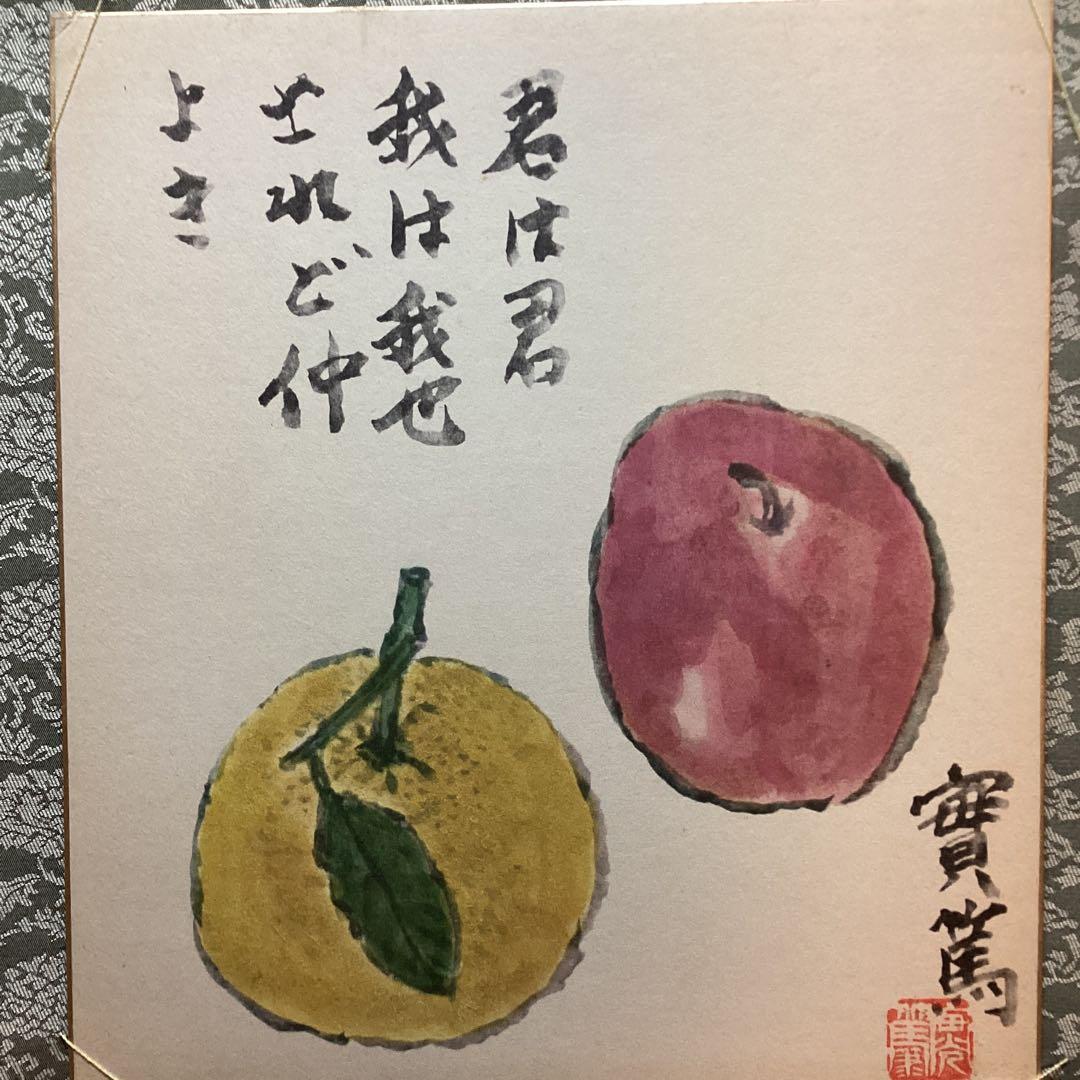 君は君
我は我也
されど仲
よき
實篤